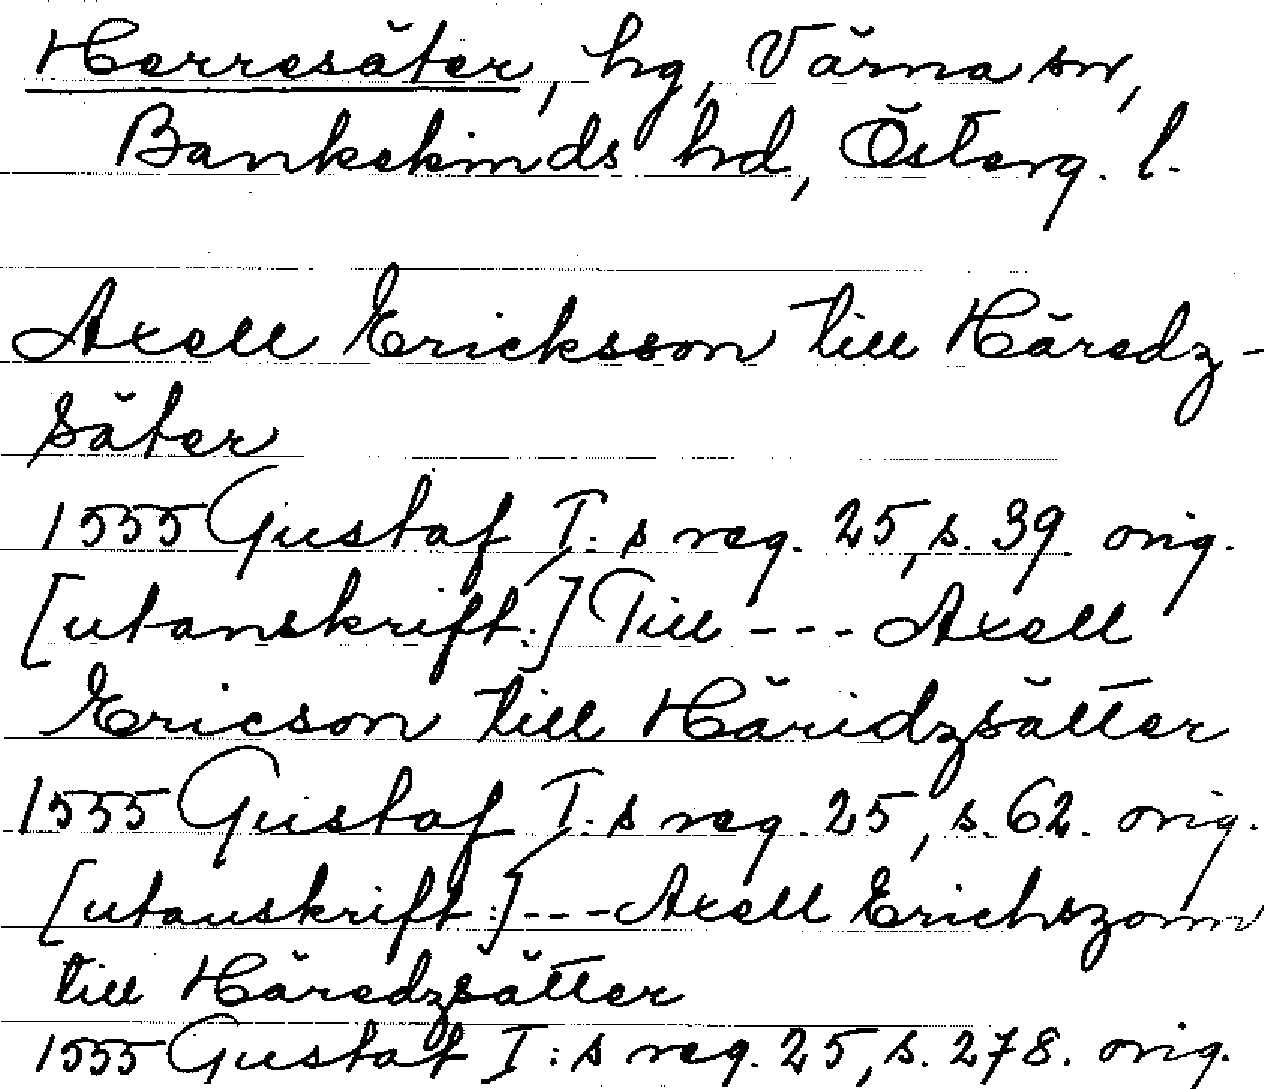 Herresäter, hg, Värna sn,
Bankekinds hd, Österg. l.
Axell Ericksson till Häredz-
säter
1555 Gustaf I: s reg. 25, s. 39. orig.
[utanskrift:] Till --- Axell
Ericson till Häridzsätter
1555 Gustaf I: s reg. 25, s. 62. orig.
[utanskrift:] --- Axell Erichszonn
till Häredzsätter
1555 Gustaf I: s reg. 25, s. 278. orig.